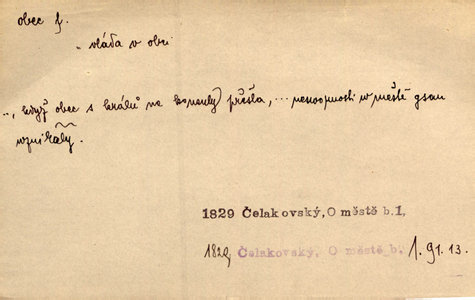 obec f.
„ vláda v obci
„, když obec s králů na konsuly přešla, ... nesvornosti w městě gsau
wznikály.
1829 Čelakovský, O městě b.1,
1829 Čelakovský, O městě b. 1. 91. 13.